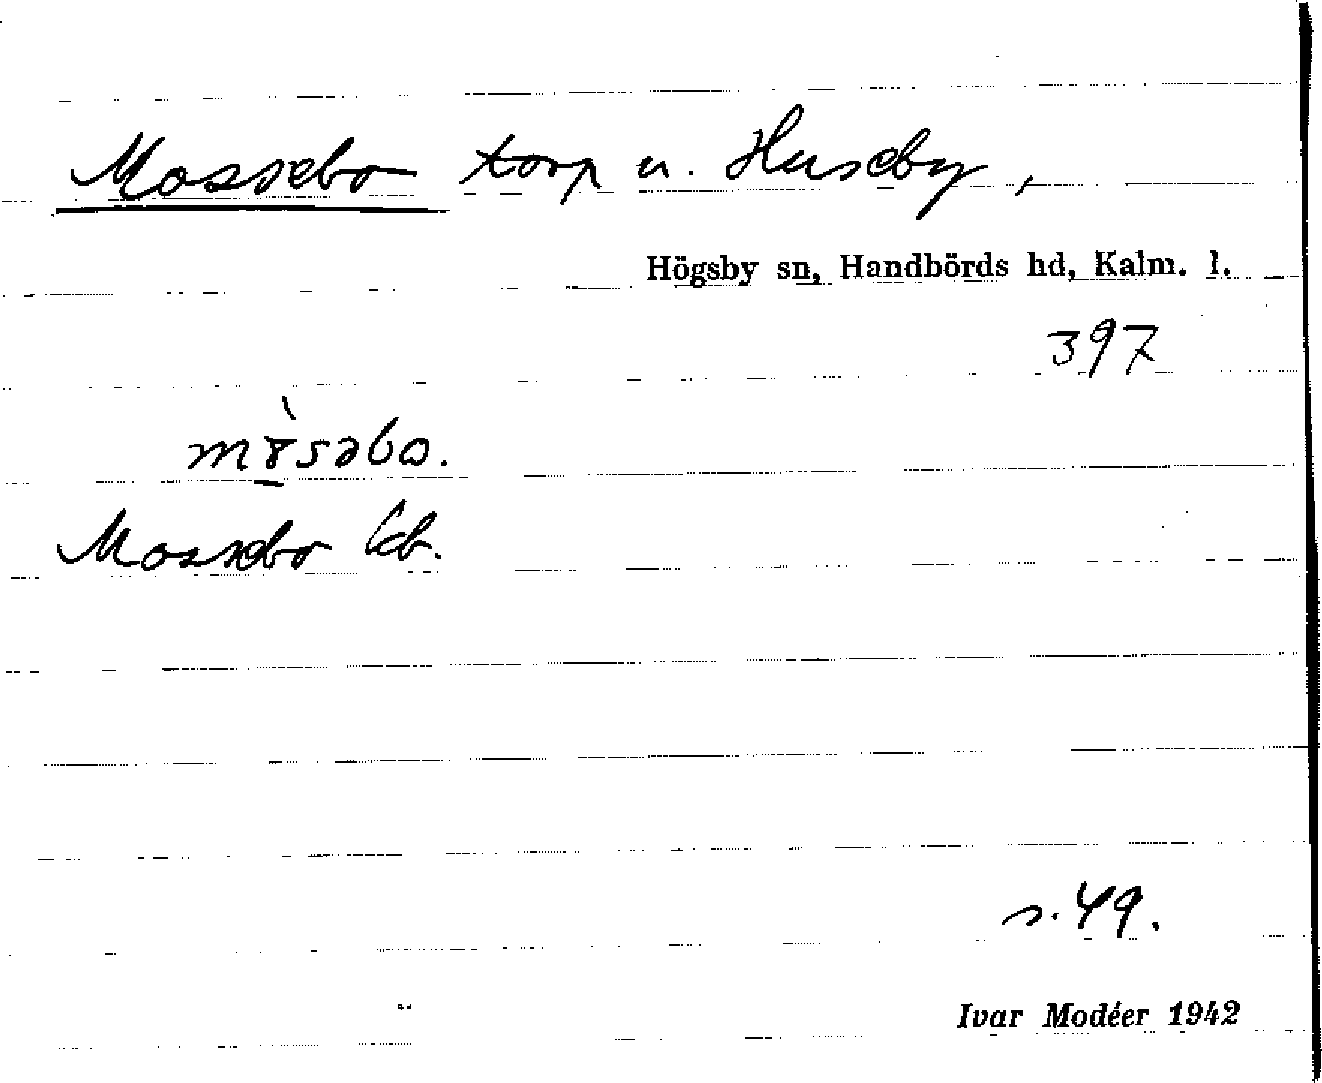 Mossebo torp u. Huseby,
Högsby sn, Handbörds hd, Kalm. l.
397
Mossebo
s. 49.
Ivar Modéer 1942